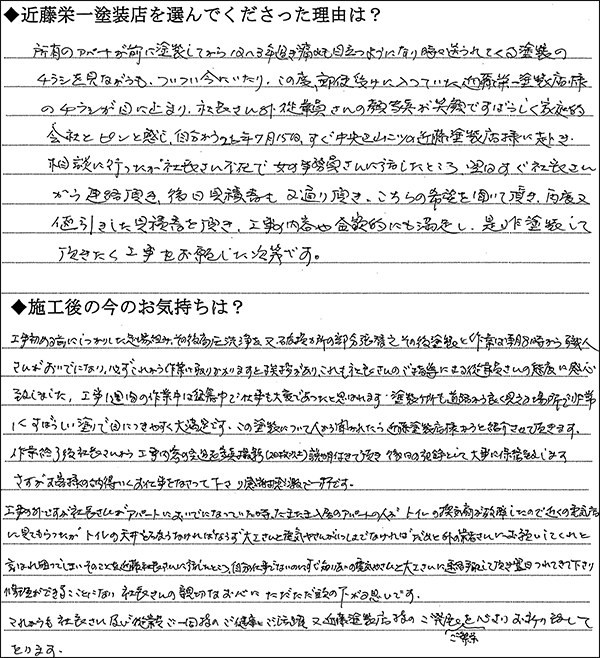 ◆近藤栄一塗装店を選んでくださった理由は？
所有のアパートが前に塗装してから12〜3年過ぎ痛みも目立つようになり時々送られてくる塗装の
チラシを見ながらも、ついつい今にいたり、この度、郵便受けに入っていた近藤栄一塗装店様
のチラシが目に止まり、社長さん外従業員さんの顔写真が笑顔ですばらしく家族的
会社とピンと感じ、自分から22年7月15日、すぐ中央区山二ツの近藤塗装店様に赴き
相談に行ったが社長さん不在で女子事務員さんに話したところ、翌日すぐ社長さん
から連絡頂き、後日見積書も 2通り頂き、こちらの希望を聞いて頂き、再度又
値引きした見積書を頂き、工事内容や金額的にも満足し、是非塗装して
頂きたく工事をお願いした次第です。
◆施工後の今のお気持ちは？
工事初める前にしっかりした足場組み、その後高圧洗浄を又破損ヶ所の部分張替えその後塗装と作業は毎朝8時から職人
さんがおいでになり、必ずこれから作業に取りかかりますと挨拶があり、これも社長さんのご指導による従業員さんの態度に感心
致しました。工事1週間の作業中は猛暑中で仕事も大変であったと思われます。塗装ヶ所も道路から良く見える場所で非常
にすばらしい塗りで目につきやすく大満足です。この塗装について人から聞かれたら近藤塗装店様からと紹介させて頂きます。
作業終了後社長さんから工事内容の全過程写真撮影(120枚以上)説明付きで頂き後日の記録として大事に保管致します
さすがお客様の納得いくお仕事をなさって下さり感謝感激で一杯です。
工事の外ですが社長さんがアパートにおいでになっていた時、たまたま入居のアパートの人が トイレの換気扇が故障したので近くの電気店
に見てもらったが トイレの天井をこわさなければならず大工さんと電気やさんがいっしょでなければダメだと外の業者さんにお願いしてくれと
言われ困ってしまいそのことを近藤社長さんに話したところ、自分の仕事でないのにすぐ知り合いの電気やさんと大工さんに連絡して頂き翌日つれてきて下さり
修理ができることになり 社長さんの親切なお心に ただただ頭の下がる思いです。
これからも社長さん及び従業員ご一同様のご健康とご活躍 又近藤塗装店様のご発展をへきよりお祈り致して
ご繁栄
おります。